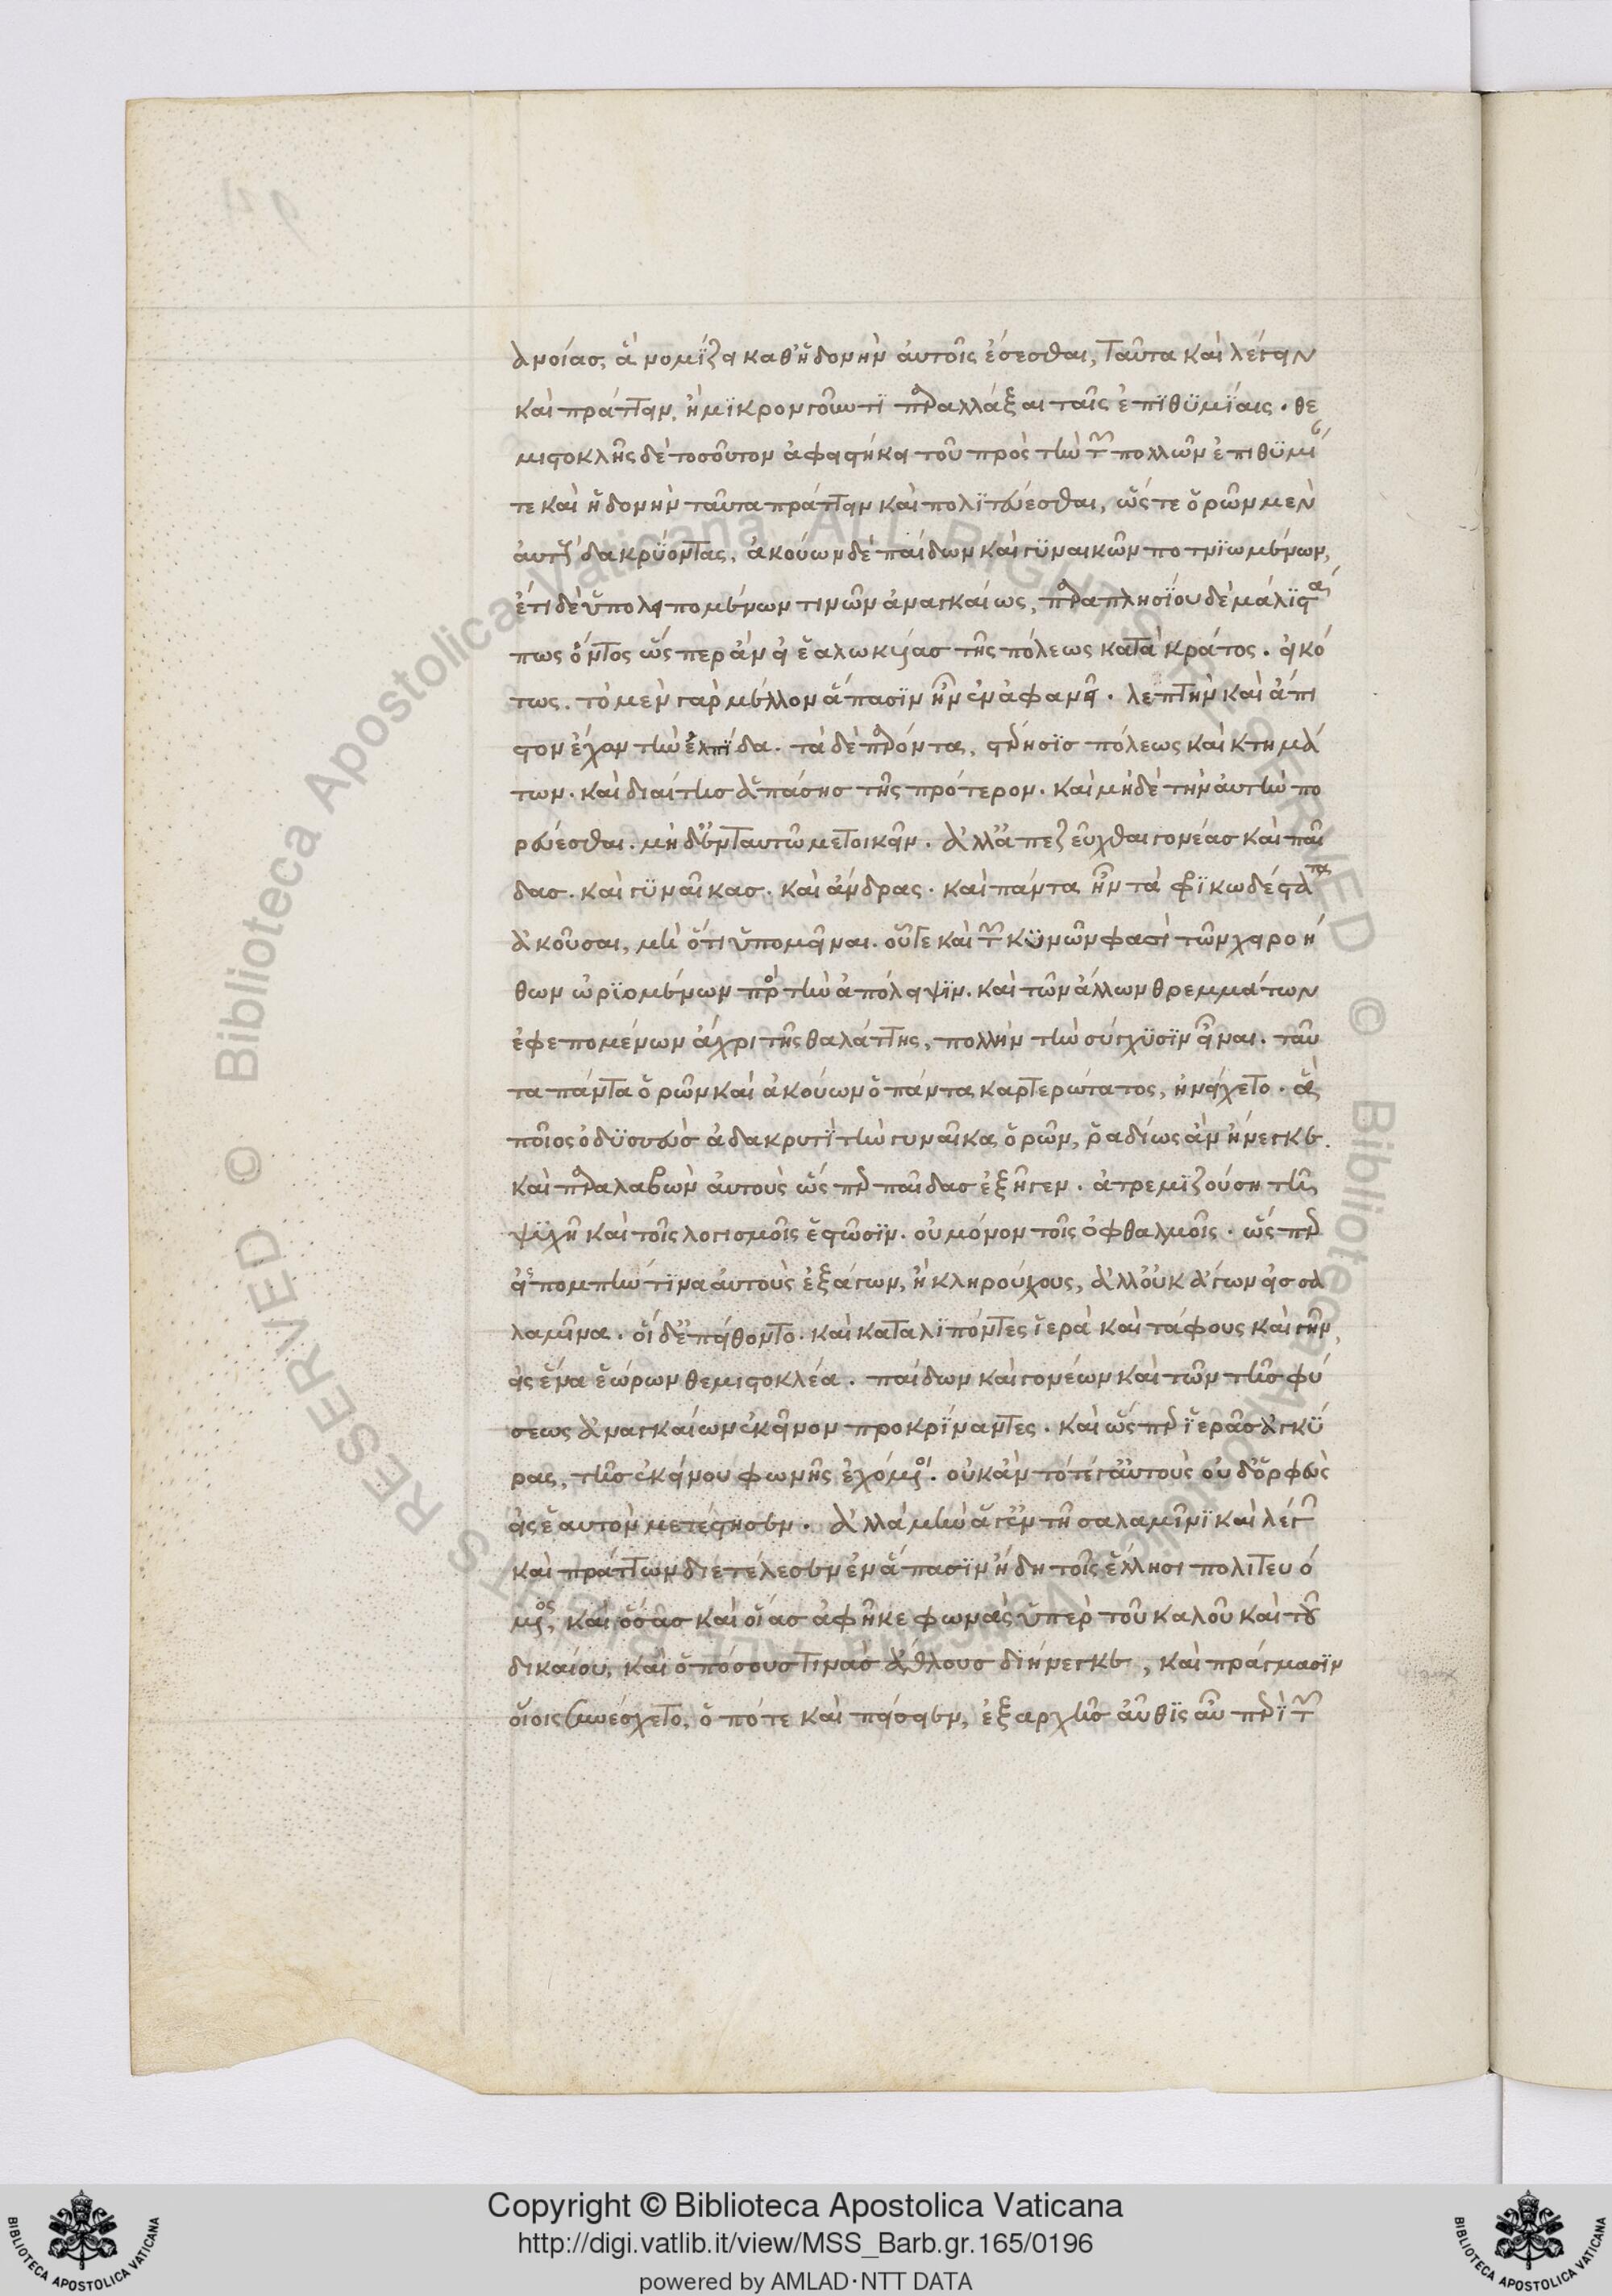 ἀνοίας, ἃ νομίζει καθ' ἡδονὴν αὐτοῖς ἔσεσθαι, ταῦτα καὶ λέγειν
καὶ πράττειν, ἢ μϊκρὸν γοῦν τϊ παραλλάξαι ταῖς ἐπϊθϋμϊαις · θε
μιστοκλῆς δὲ τοσοῦτον ἀφειστήκει τοῦ πρὸς τὴν τῶν πολλῶν ἐπιθϋμί
τε καὶ ἡδονὴν ταῦτα πράττειν καὶ πολϊτεύεσθαι, ὥς τε ὁρῶν μὲν
αὐτοὺς δακρϋοντας, ἀκούων δὲ παίδων καὶ γϋναικῶν ποτνϊωμένων,
ἔτι δὲ ὑπολειπομένων τινῶν ἀναγκαίως, παραπλησϊου δὲ μάλϊστά
πως ὄντος ὥς περ ἂν εἰ ἑαλωκυίας τῆς πόλεως κατὰ κράτος · εἰκό
τως. τὸ μὲν γὰρ μέλλον ἅπασϊν ἦν ἐν ἀφανεῖ · λεπτὴν καὶ ἄπι
στον ἔχον τὴν ἐλπϊδα. τὰ δὲ παρόντα, στέρησϊς πόλεως καὶ κτημά
των. καὶ διαίτης ἁπάσης τῆς πρότερον. καὶ μηδὲ τὴν αὐτὴν πο
ρεύεσθαι. μηδ' ἐνταυτῶ μετοικεῖν. ἀλλ' ἀπεζεῦχθαι γονέας καὶ παῖ
δας. καὶ γϋναῖκας. καὶ ἄνδρας. καὶ πάντα ἦν τὰ φρϊκωδέστατα
ἀκοῦσαι, μὴ ὅτι ὑπομεῖναι. οὗ γε καὶ τῶν κϋνῶν φασὶ τῶν χειροή
θων ὠρϊομένων πρὸς τὴν ἀπόλειψϊν. καὶ τῶν ἄλλων θρεμμάτων
ἐφεπομένων ἄχρι τῆς θαλάττης, πολλὴν τὴν σύγχϋσϊν εἶναι. ταῦ
τα πάντα ὁρῶν καὶ ἀκούων ὁ πάντα καρτερώτατος, ἠνείχετο ·
ποῖος ὀδϋσσεὺς ἀδακρυτϊ τὴν γυναῖκα ὁρῶν, ῥαδίως ἂν ἤνεγκεν.
καὶ παραλαβὼν αὐτοὺς ὥς περ παῖδας ἐξῆγεν. ἀτρεμϊζούση τῆ
ψϋχῆ καὶ τοῖς λογισμοῖς ἑστῶσϊν. οὐ μόνον τοῖς ὀφθαλμοῖς. ὥς περ
εἰς πομπήν τϊνα αὐτοὺς ἐξάγων, ἢ κληρούχους, ἀλλ' οὐκ ἄγων εἰς σα
λαμῖνα. οἱ δ' ἐπείθοντο. καὶ καταλϊπόντες ϊερὰ καὶ τάφους καὶ γῆν,
εἰς ἕνα ἑώρων θεμιστοκλέα. παίδων καὶ γονέων καὶ τῶν τῆς φύ
σεως ἀναγκαίων ἐκεῖνον προκρϊναντες. καὶ ὥς περ ϊερᾶς ἀγκϋ
ρας, τῆς ἐκείνου φωνῆς ἐχόμενοι. οὐκ ἂν τότέ γ' αὐτοὺς οὐδ' ὀρφεὺς
εἰς ἑαυτὸν μετέστησεν. ἀλλὰ μὴν ἅ γ' ἐν τῆ σαλαμῖνϊ καὶ λέγων
καὶ πράττων διετέλεσεν ἐν ἅπασϊν ἤδη τοῖς ἕλλησι πολιτευό
μενος, καὶ ὅσας καὶ οἵας ἀφῆκε φωνὰς ὑπὲρ τοῦ καλοῦ καὶ τοῦ
δικαίου, καὶ ὁπόσους τινὰς ἄθλους διήνεγκεν, καὶ πράγμασϊν
οἵοις συνέσχετο, ὁπότε καὶ πείσειεν, ἐξαρχῆς αὖθϊς αὖ περὶ τῶν
Copyright © Biblioteca Apostolica Vaticana
http://digi.vatlib.it/view/MSS_Barb.gr.165/0196
powered by AMLAD·NTT DATA